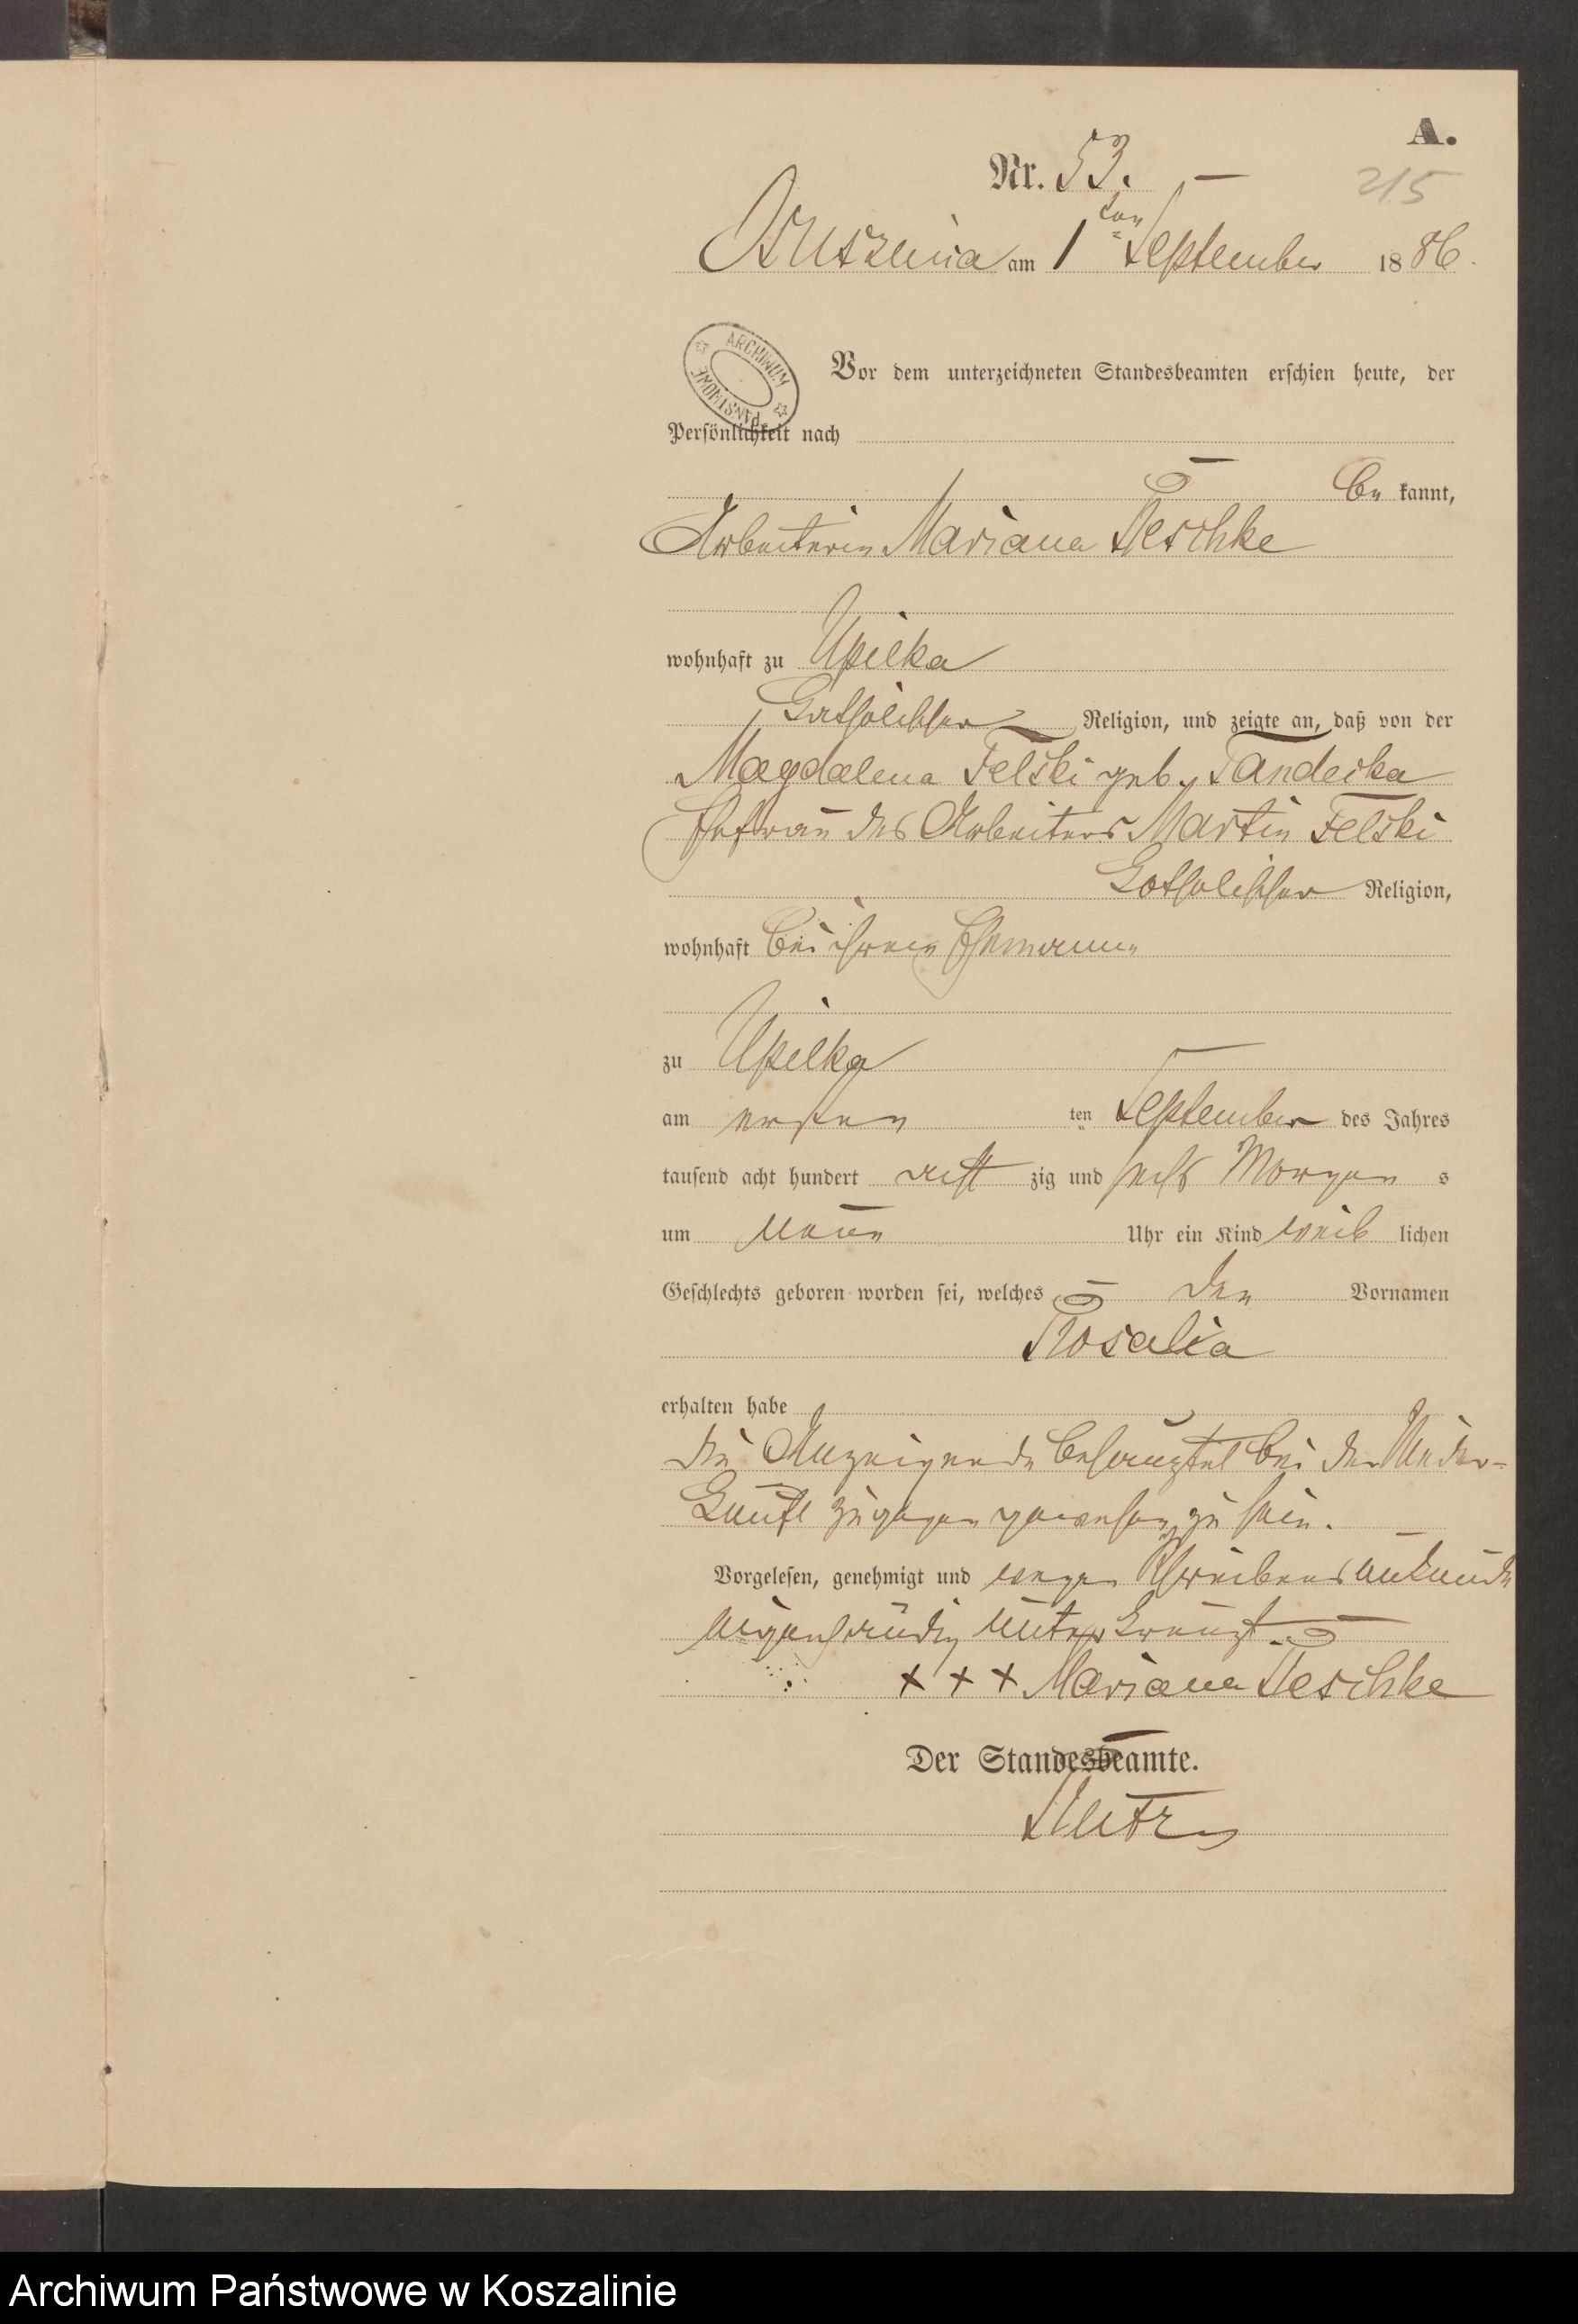 A.
Nr. 53.
215
am 1ten September 1886.
ARCHIWUM PAŃSTWOWE
Vor dem unterzeichneten Standesbeamten erschien heute, der
Persönlichkeit nach
be kannt,
Arbeiterin Mariana Peschke
wohnhaft zu Upilka
katholischer Religion, und zeigte an, daß von der
Magdalena Felski geb. Tandecka
Ehefrau des Arbeiters Martin Felski
katholischer Religion,
wohnhaft bei ihrem Ehemann
zu Upilka
am ersten ten September des Jahres
tausend acht hundert acht zig und sechs Morgen s
um neun Uhr ein Kind weib lichen
Geschlechts geboren worden sei, welches den Vornamen
Rosalia
erhalten habe
die Anzeigende behauptet bei der Nieder-
kunft zugegen gewesen zu sein.
Vorgelesen, genehmigt und wegen Schreibensunkunde
eigenhändig unterkreuzt.
+ + + Mariana Peschke
Der Standesbeamte.
Archiwum Państwowe w Koszalinie